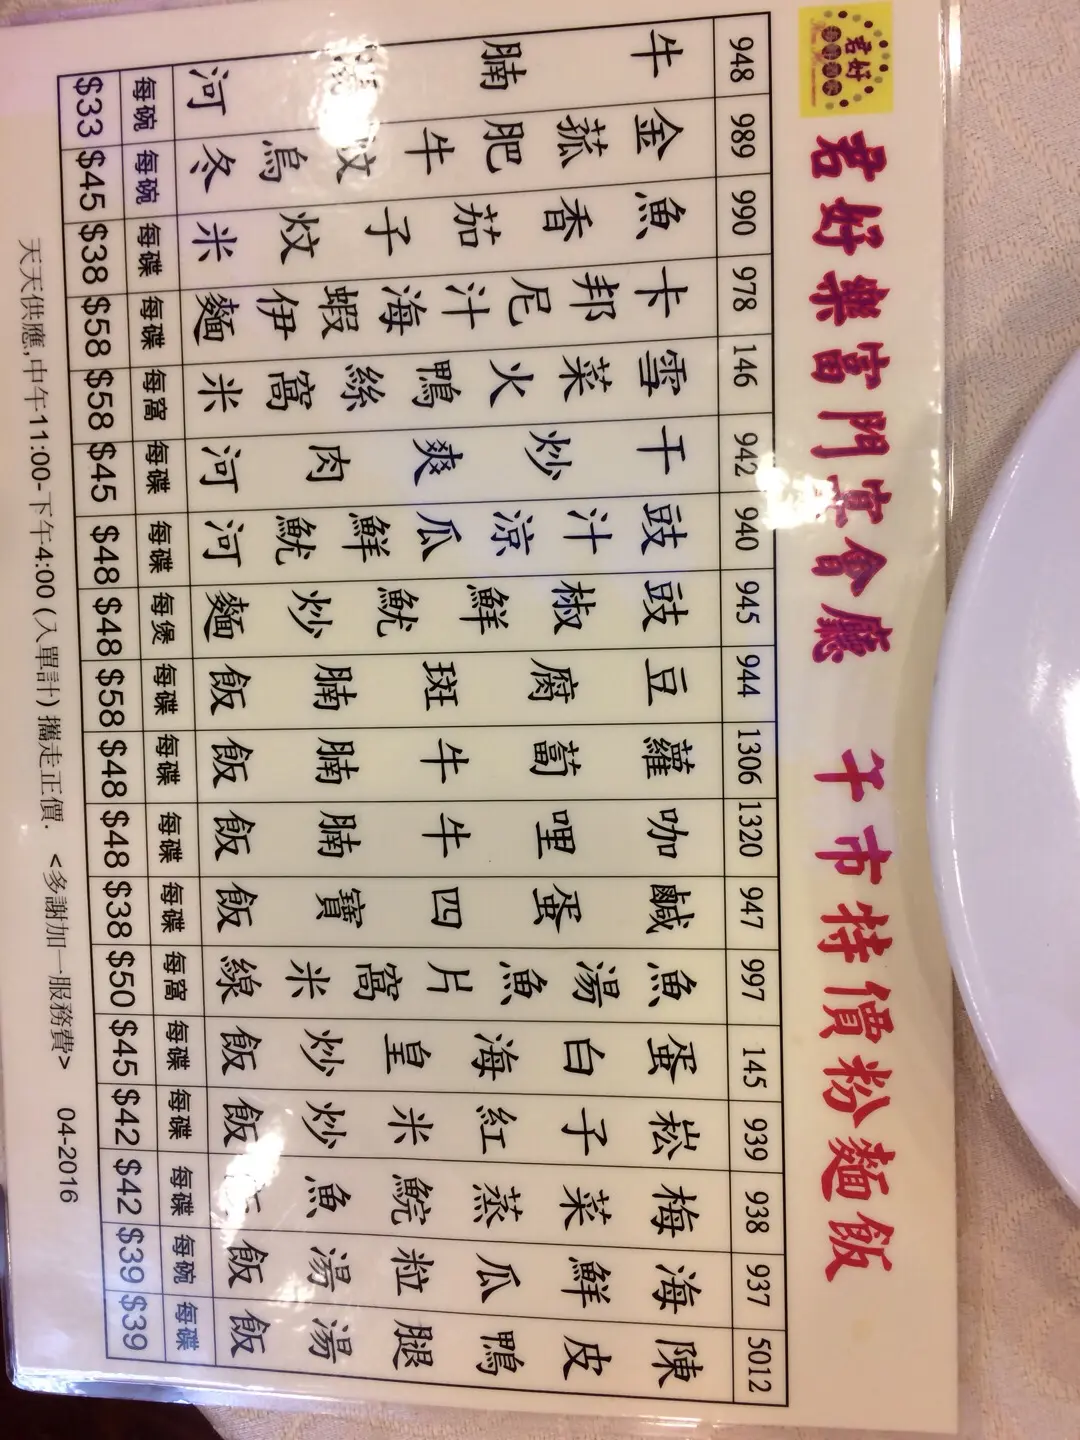 君好
君好樂富門宴會廳 午市特價粉麵飯
948 牛腩湯河 每碗 $33
989 金菇肥牛炆烏冬 每碗 $45
990 魚香茄子炆米 每碟 $38
978 卡邦尼汁海蝦伊麵 每碟 $58
146 雪菜火鴨絲窩米 每窩 $58
942 干炒爽肉河 每碟 $45
940 豉汁涼瓜鮮魷河 每碟 $48
945 豉椒鮮魷炒麵 每煲 $48
944 豆腐斑腩飯 每碟 $58
1306 蘿蔔牛腩飯 每碟 $48
1320 咖哩牛腩飯 每碟 $48
947 鹹蛋四寶飯 每碟 $38
997 魚湯魚片窩米線 每窩 $50
145 蛋白海皇炒飯 每碟 $45
939 崧子紅米炒飯 每碟 $42
938 梅菜蒸鯇魚飯 每碟 $42
937 海鮮瓜粒湯飯 每碗 $39
5012 陳皮鴨腿湯飯 每碟 $39
天天供應,中午11:00-下午4:00 (入單計) 攜走正價. <多謝加一服務費> 04-2016